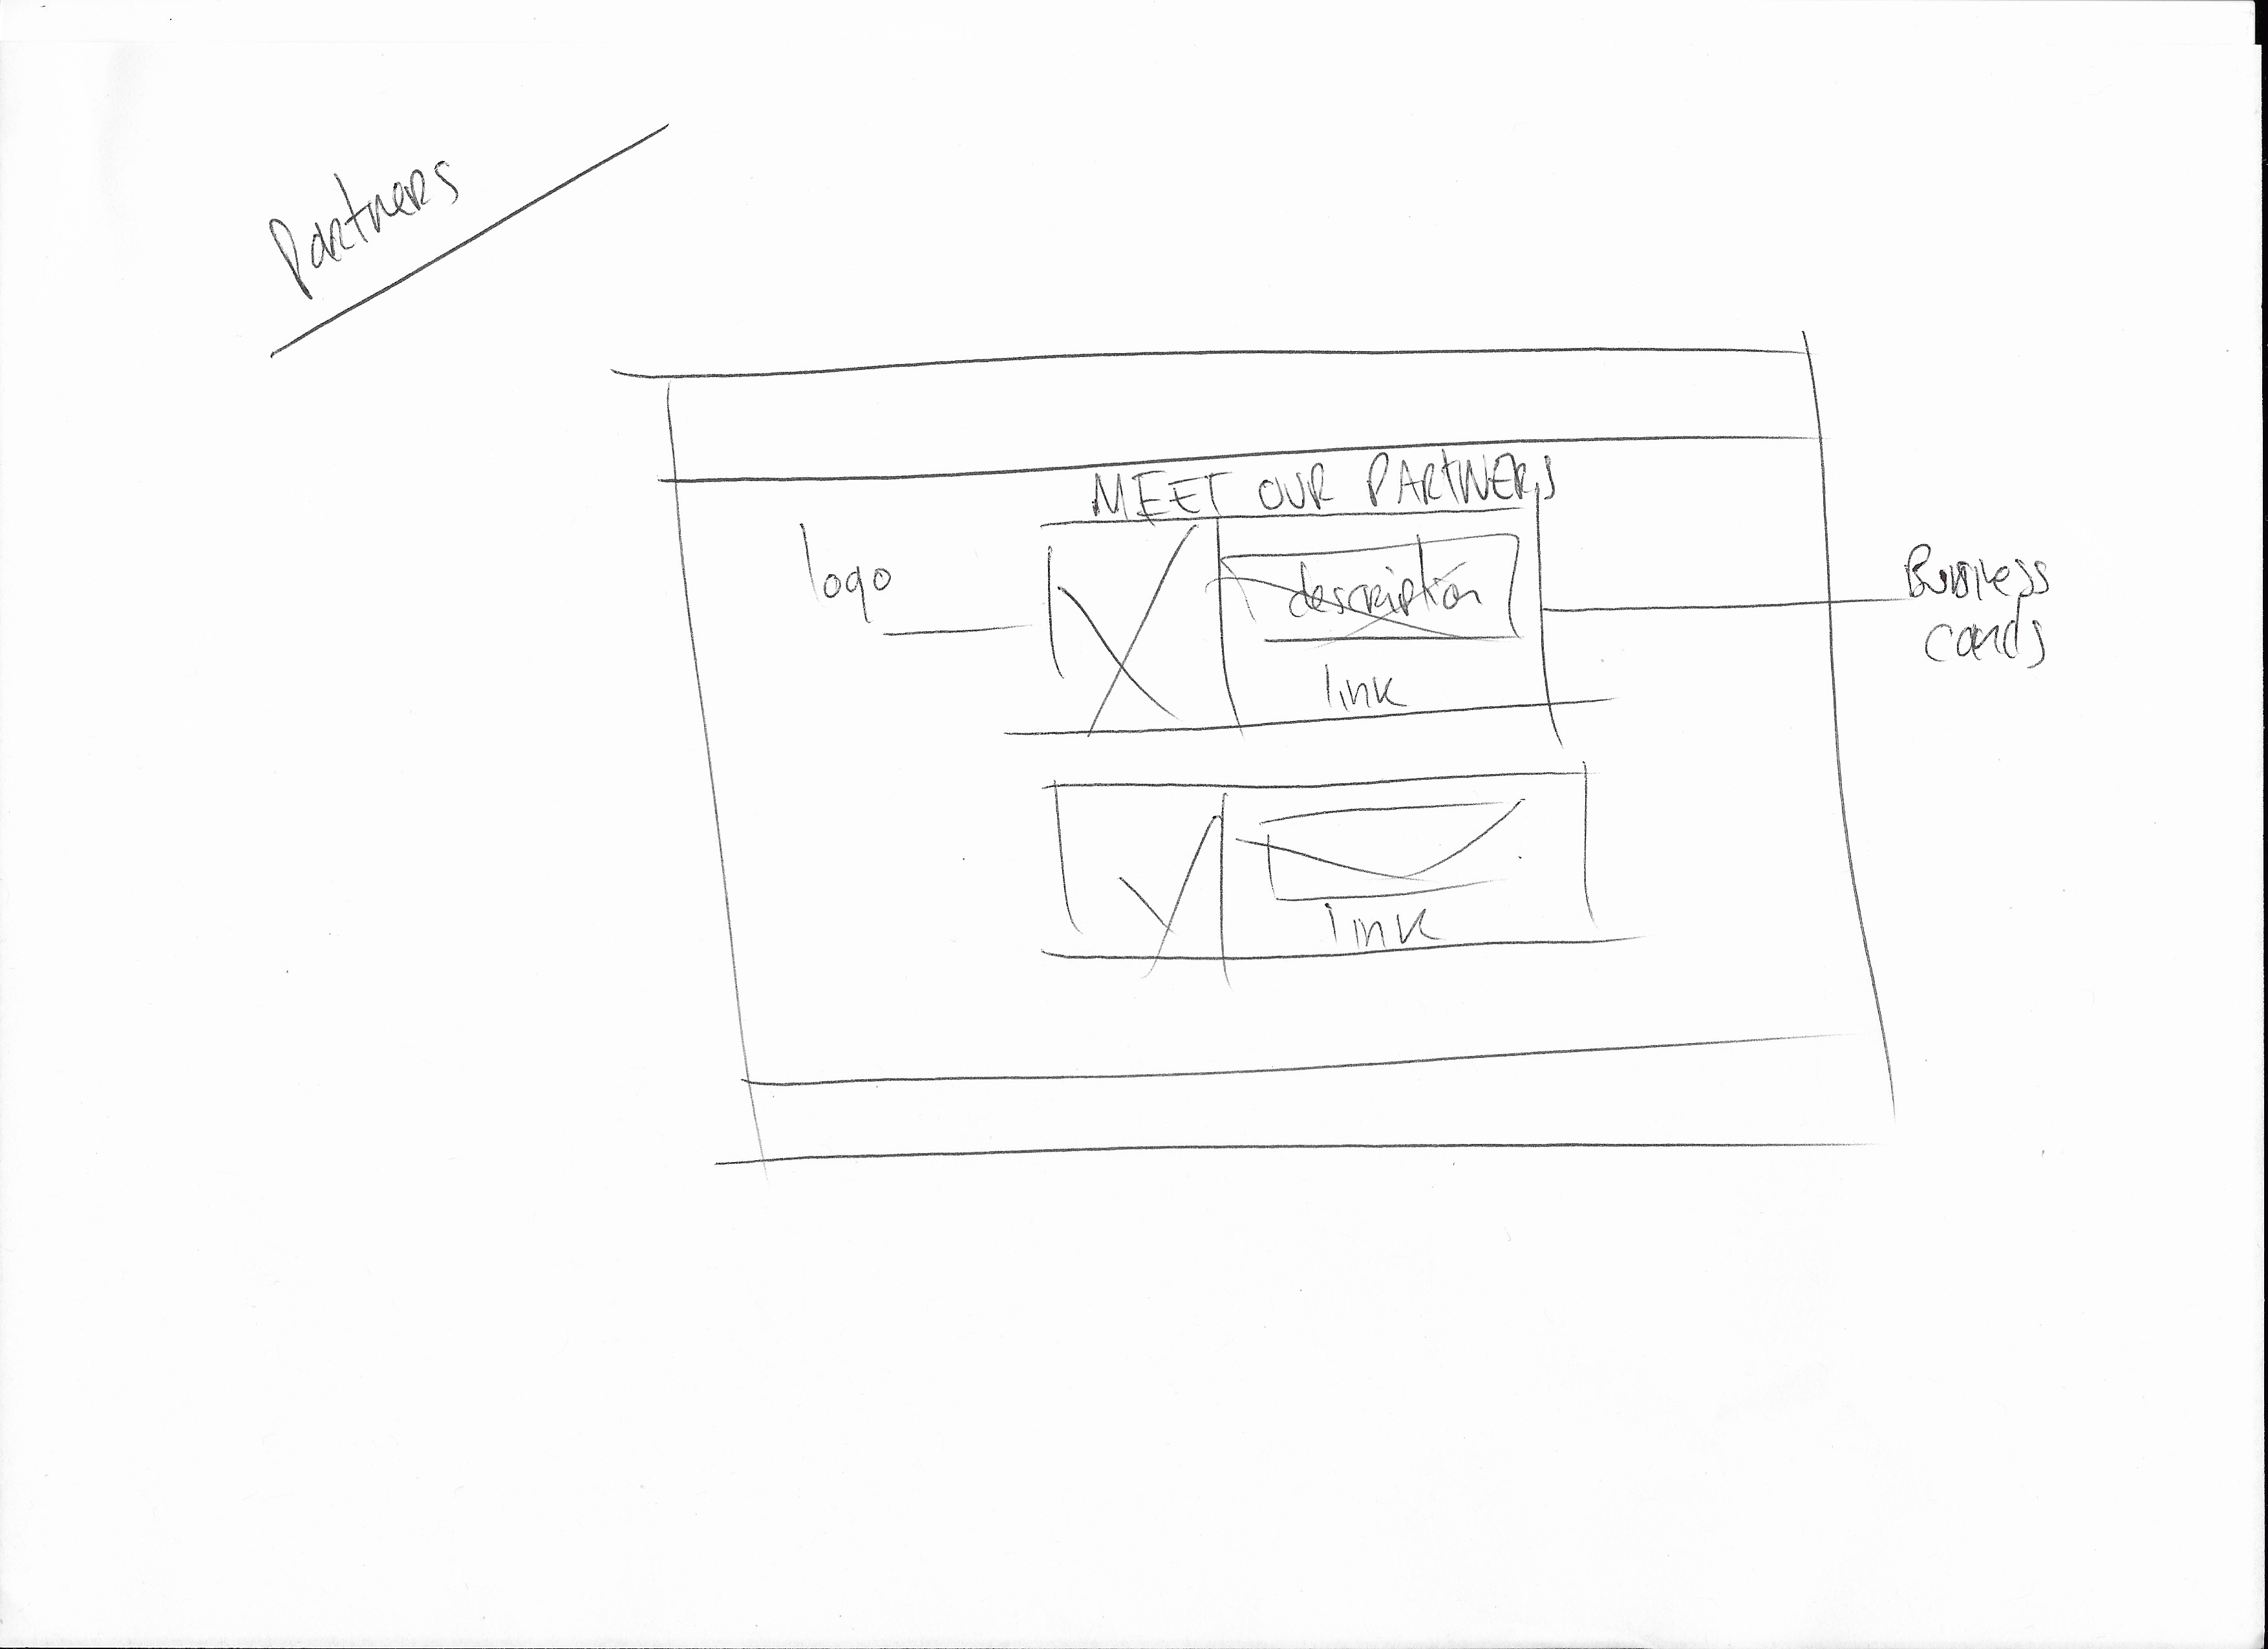 Partners
MEET OUR PARTNERS
logo
description
link
Business
cards
link